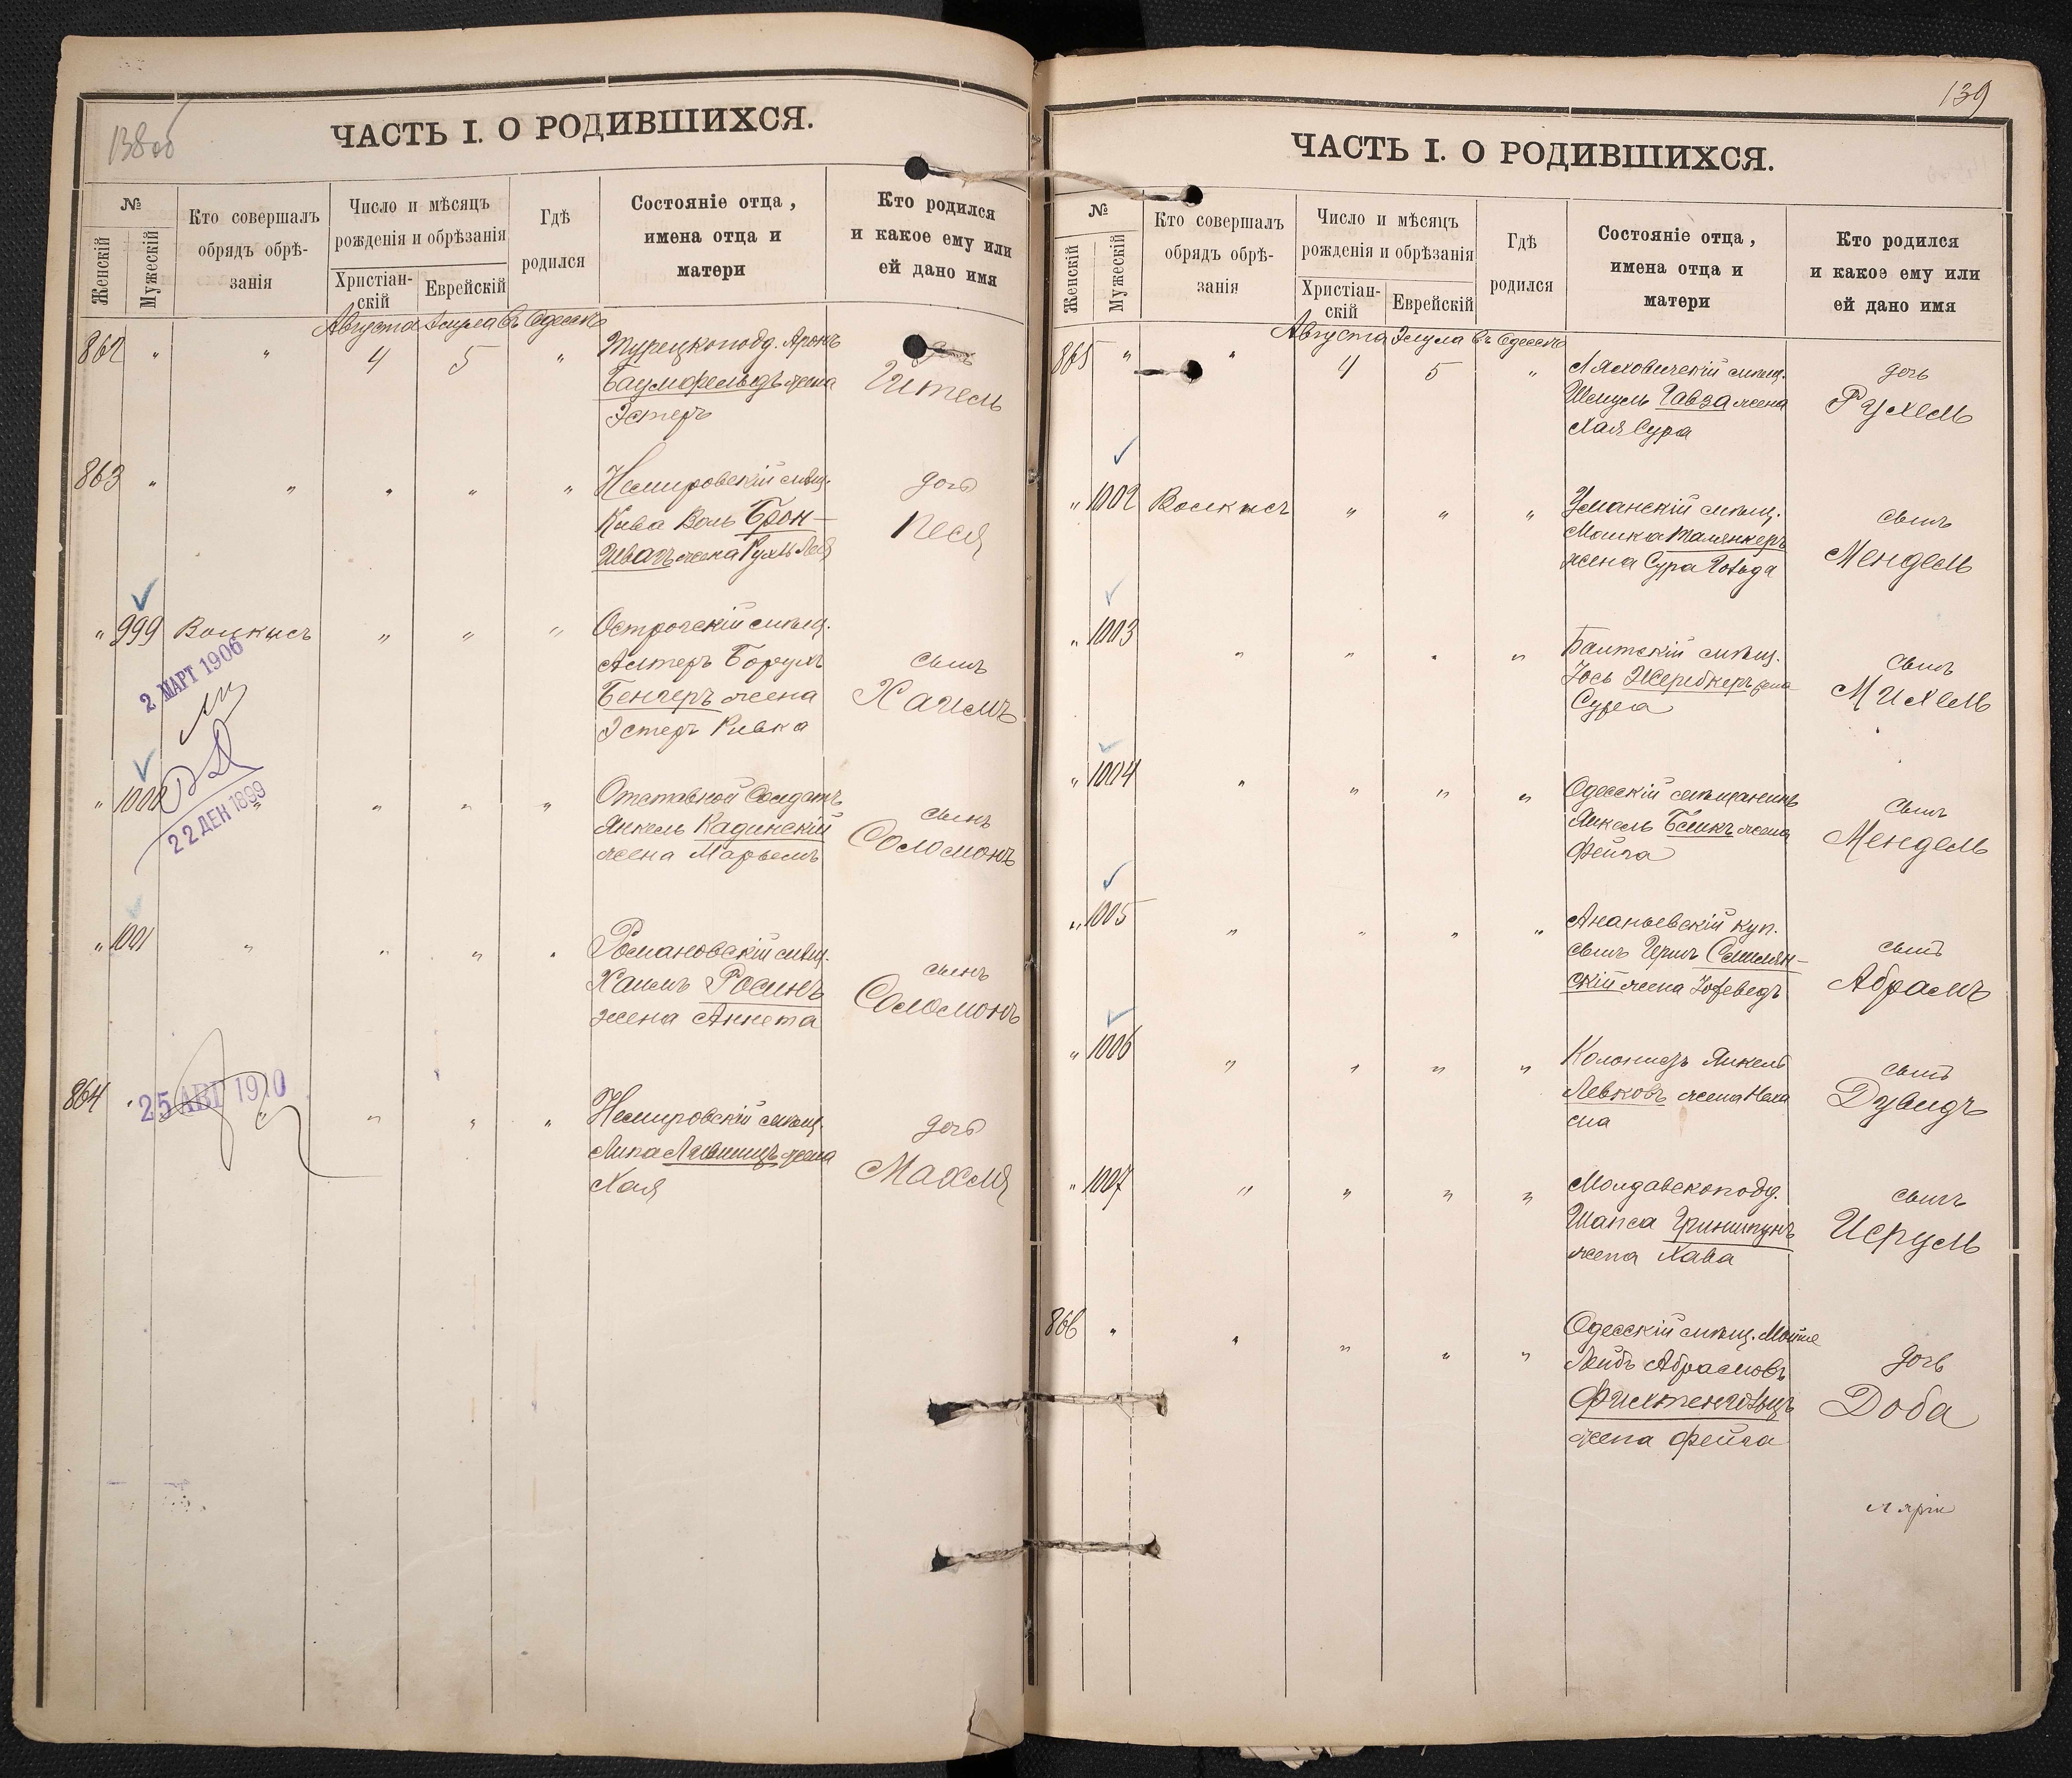 138об
ЧАСТЬ I. О РОДИВШИХСЯ.
№
Женскій
Мужескій
Кто совершалъ
обрядъ обрѣ-
занія
Число и мѣсяцъ
рожденія и обрѣзанія
Христіан-
скій
Еврейскій
Гдѣ
родился
Состояніе отца,
имена отца и
матери
Кто родился
и какое ему или
ей дано имя
Августа Элула Въ Одессѣ
862 " " 4 5 "
Турецкопод. Аронъ
Баумфельдъ жена
Эстеръ
дочь
Итель
863 " " " " "
Немировскій мѣщ.
Кива Воль Брон-
Швагъ жена Рухль Лея
дочь
Песя
" 999 Волкисъ " " "
Острогскій мѣщ.
Алтеръ Борухъ
Бенгеръ жена
Эстеръ Ривка
сынъ
Хаимъ
2 МАРТ 1906
" 1000 " " " "
Отставной Солдатъ
Янкель Кадинскій
жена Марьемъ
сынъ
Соломонъ
22 ДЕК 1899
" 1001 " " " "
Романовскій мѣщ.
Хаимъ Росинъ
жена Аннета
сынъ
Соломонъ
864 " " " " "
Немировскій мѣщ.
Липа Лившицъ жена
Хая
дочь
Махля
25 АВГ 1910
139
ЧАСТЬ I. О РОДИВШИХСЯ.
№
Женскій
Мужескій
Кто совершалъ
обрядъ обрѣ-
занія
Число и мѣсяцъ
рожденія и обрѣзанія
Христіан-
скій
Еврейскій
Гдѣ
родился
Состояніе отца,
имена отца и
матери
Кто родился
и какое ему или
ей дано имя
Августа Элула Въ Одессѣ
865 " " 4 5 "
Ляховичскій мѣщ.
Шмуль Гавза жена
Хая Сура
дочь
Рухель
" 1002 Волкисъ " " "
Уманскій мѣщ.
Мошка Талянкеръ
жена Сура Гольда
сынъ
Мендель
" 1003 " " " "
Балтскій мѣщ.
Іось Жербкеръ жена
Сура
сынъ
Михель
" 1004 " " " "
Одесскій мѣщанинъ
Янкель Бликъ жена
Фейга
сынъ
Мендель
" 1005 " " " "
Ананьевскій куп.
сынъ Гершъ Смилян-
скій жена Іохеведъ
сынъ
Абрамъ
" 1006 " " " "
Колонистъ Янкель
Левковъ жена Неха
ма
сынъ
Дувидъ
" 1007 " " " "
Молдавскопод.
Шапса Гриншпунъ
жена Хава
сынъ
Исруль
866 " " " " "
Одесскій мѣщ. Мойше
Лейбъ Абрамовъ
Фихтенгольцъ
жена Фейга
дочь
Доба